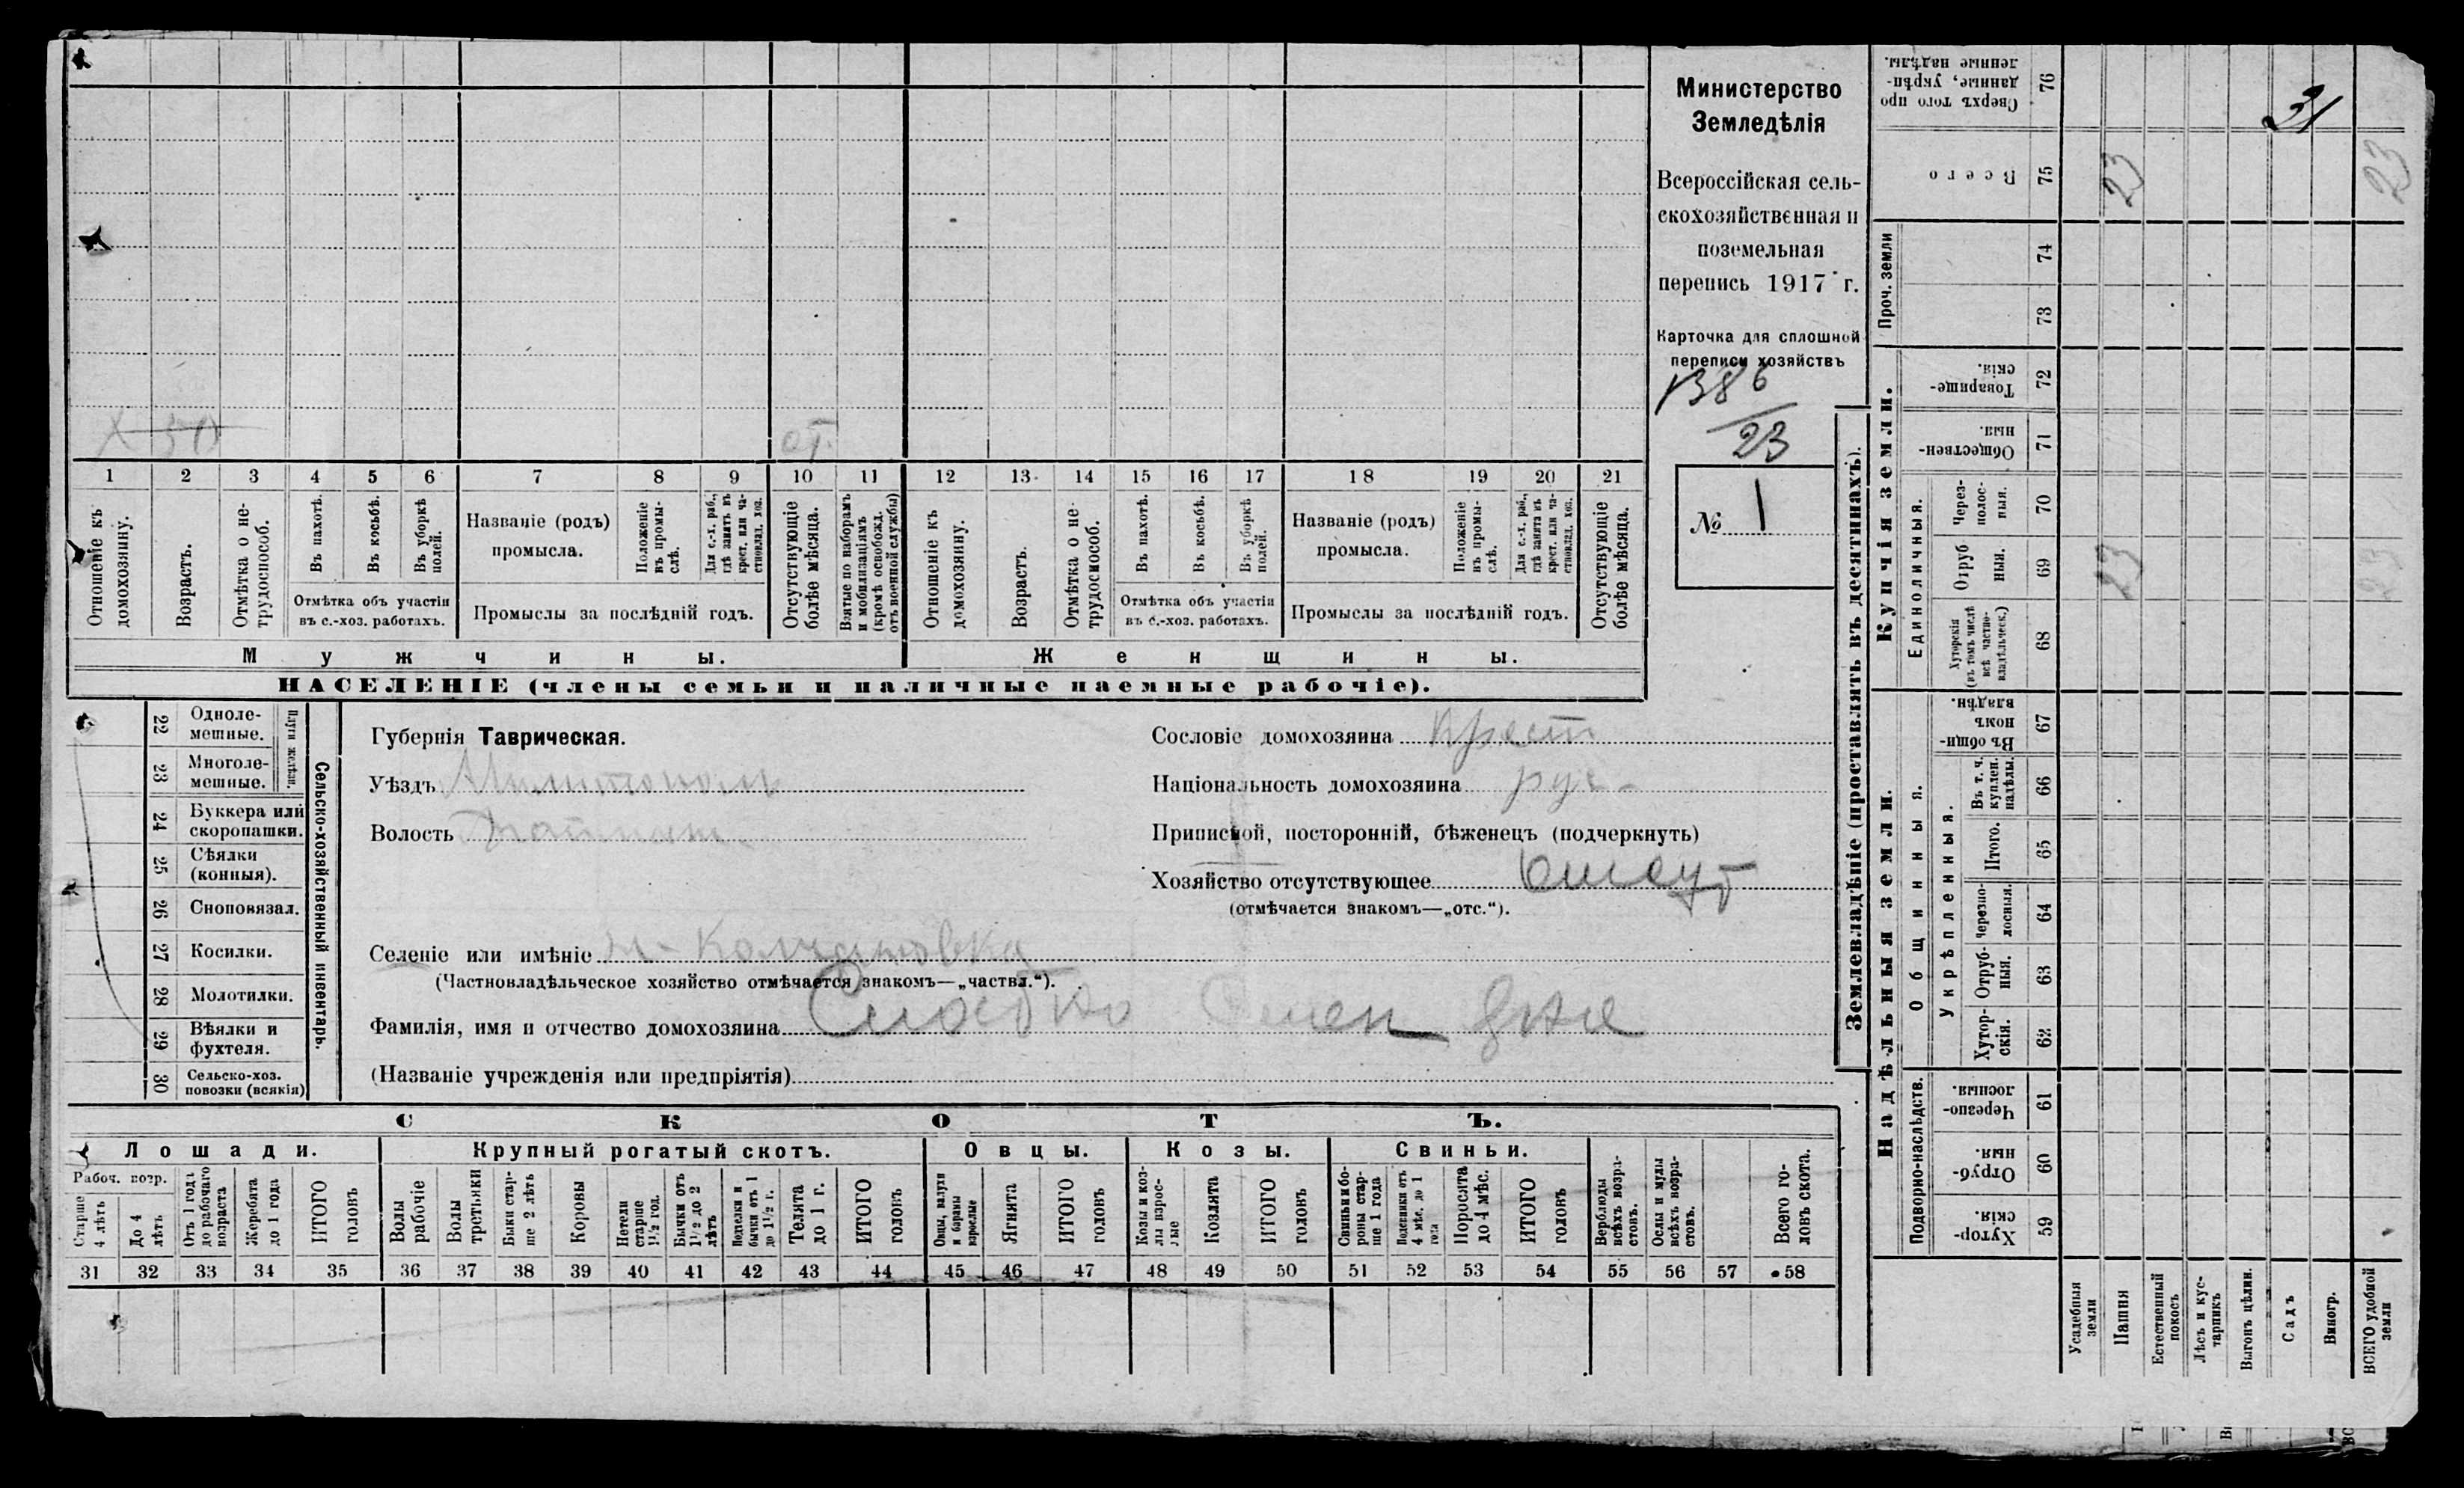 Х 50 от.
1 2 3 4 5 6 7 8 9 10 11 12 13 14 15 16 17 18 19 20 21
Отношеніе къ домохозяину.
Возрастъ.
Отмѣтка о нетрудоспособ.
Въ пахотѣ.
Въ косьбѣ.
Въ уборкѣ полей.
Отмѣтка объ участіи
въ с.-хоз. работахъ.
Названіе (родъ)
промысла.
Положеніе въ промыслѣ.
Для с.-х. раб., гдѣ занятъ въ крест. или частновлад. хоз.
Промыслы за послѣдній годъ.
Отсутствующіе болѣе мѣсяца.
Взятые по наборамъ и мобилизаціямъ (кромѣ освобожд. отъ военной службы)
Отношеніе къ домохозяину.
Возрастъ.
Отмѣтка о нетрудоспособ.
Въ пахотѣ.
Въ косьбѣ.
Въ уборкѣ полей.
Отмѣтка объ участіи
въ с.-хоз. работахъ.
Названіе (родъ)
промысла.
Положеніе въ промыслѣ.
Для с.-х. раб., гдѣ занята въ крест. или частновлад. хоз.
Промыслы за послѣдній годъ.
Отсутствующіе болѣе мѣсяца.
Мужчины. Женщины.
НАСЕЛЕНІЕ (члены семьи и наличные наемные рабочіе).
Министерство
Земледѣлія
Всероссійская сель-
скохозяйственная и
поземельная
перепись 1917 г.
Карточка для сплошной
переписи хозяйствъ
1386
23
№ 1
Сельско-хозяйственный инвентарь.
Плуги желѣзн.
22 Одноле-
мешные.
23 Многоле-
мешные.
24 Буккера или
скоропашки.
25 Сѣялки
(конныя).
26 Сноповязал.
27 Косилки.
28 Молотилки.
29 Вѣялки и
фухтеля.
30 Сельско-хоз.
повозки (всякія)
Губернія Таврическая.
Уѣздъ
Волость
Селеніе или имѣніе
(Частновладѣльческое хозяйство отмѣчается знакомъ—„частвл.“).
Фамилія, имя и отчество домохозяина
(Названіе учрежденія или предпріятія)
Сословіе домохозяина Крест
Національность домохозяина рус-
Приписной, посторонній, бѣженецъ (подчеркнуть)
Хозяйство отсутствующее
(отмѣчается знакомъ—„отс.“).
СКОТЪ.
Лошади. Крупный рогатый скотъ. Овцы. Козы. Свиньи.
Рабоч. возр.
Старше 4 лѣтъ
До 4 лѣтъ
Отъ 1 года до рабочаго возраста
Жеребята до 1 года
ИТОГО головъ
Волы рабочіе
Волы третьяки
Быки старше 2 лѣтъ
Коровы
Нетели старше 1½ год.
Бычки отъ 1½ до 2 лѣтъ
Подтелки и бычки отъ 1 до 1½ г.
Телята до 1 г.
ИТОГО головъ
Овцы, валухи и бараны взрослые
Ягнята
ИТОГО головъ
Козы и козлы взрослые
Козлята
ИТОГО головъ
Свиньи и бороны старше 1 года
Подсвинки отъ 4 мѣс. до 1 года
Поросята до 4 мѣс.
ИТОГО головъ
Верблюды всѣхъ возрастовъ.
Ослы и мулы всѣхъ возрастовъ.
Всего головъ скота.
31 32 33 34 35 36 37 38 39 40 41 42 43 44 45 46 47 48 49 50 51 52 53 54 55 56 57 58
Землевладѣніе (проставлять въ десятинахъ).
Надѣльныя земли.
Купчія земли.
Проч. земли
Подворно-наслѣдств.
Общинныя.
Укрѣпленныя.
Единоличныя.
Сверхъ того проданные, укрѣпленные надѣлы. 76
Всего 75
74
73
Товарищескія. 72
Общественныя. 71
Черезполосныя. 70
Отрубныя. 69
Хуторскія (въ томъ числѣ всѣ частновладѣльческ.) 68
Въ общиномъ владѣн. 67
Въ т. ч. куплен. надѣлы. 66
Итого. 65
Черезполосныя. 64
Отрубныя. 63
Хуторскія. 62
Черезполосныя. 61
Отрубныя. 60
Хуторскія. 59
31
23 23
23 23
Усадебныя земли
Пашня
Естественный покосъ
Лѣсъ и кустарникъ
Выгонъ цѣлин.
Садъ
Виногр.
ВСЕГО удобной земли